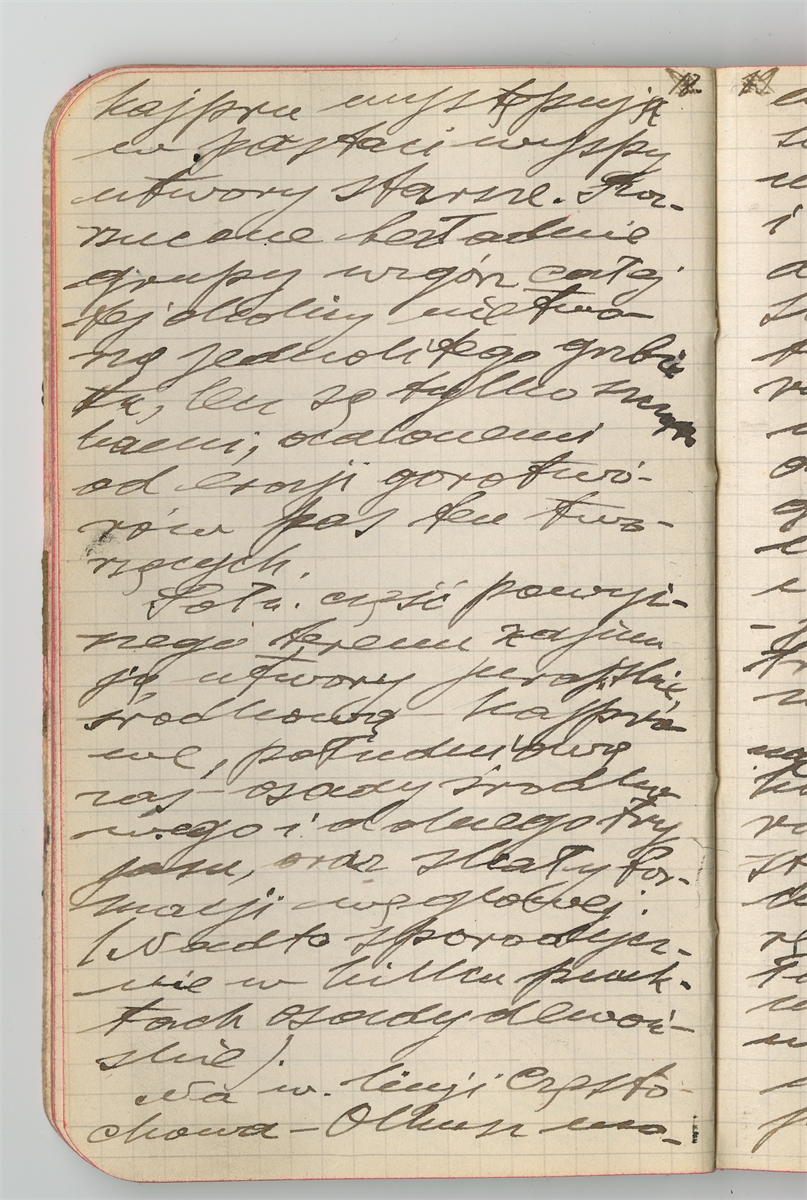 kajpru występują
w postaci wyspy
utwory starsze. Roz-
rzucone bezładnie
grupy wzgórz całej
tej okolicy nie two-
rzą jednolitego grzbie
tu, lecz są tylko szcząt
kami, ocalonemi
od erozji gorotwo-
rów pas ten two-
rzących.
Półn. część powyż-
nego terenu zajmu
ją utwory jurajskie,
środkową kajpro
we, południową
zaś osady środko
wego i dolnego try
jasu, oraz skały for-
macji węglowej.
(Nadto sporadycz-
nie w kilku punk-
tach osady dewoń-
skie).
Na w. linji Często-
chowa – Olkusz